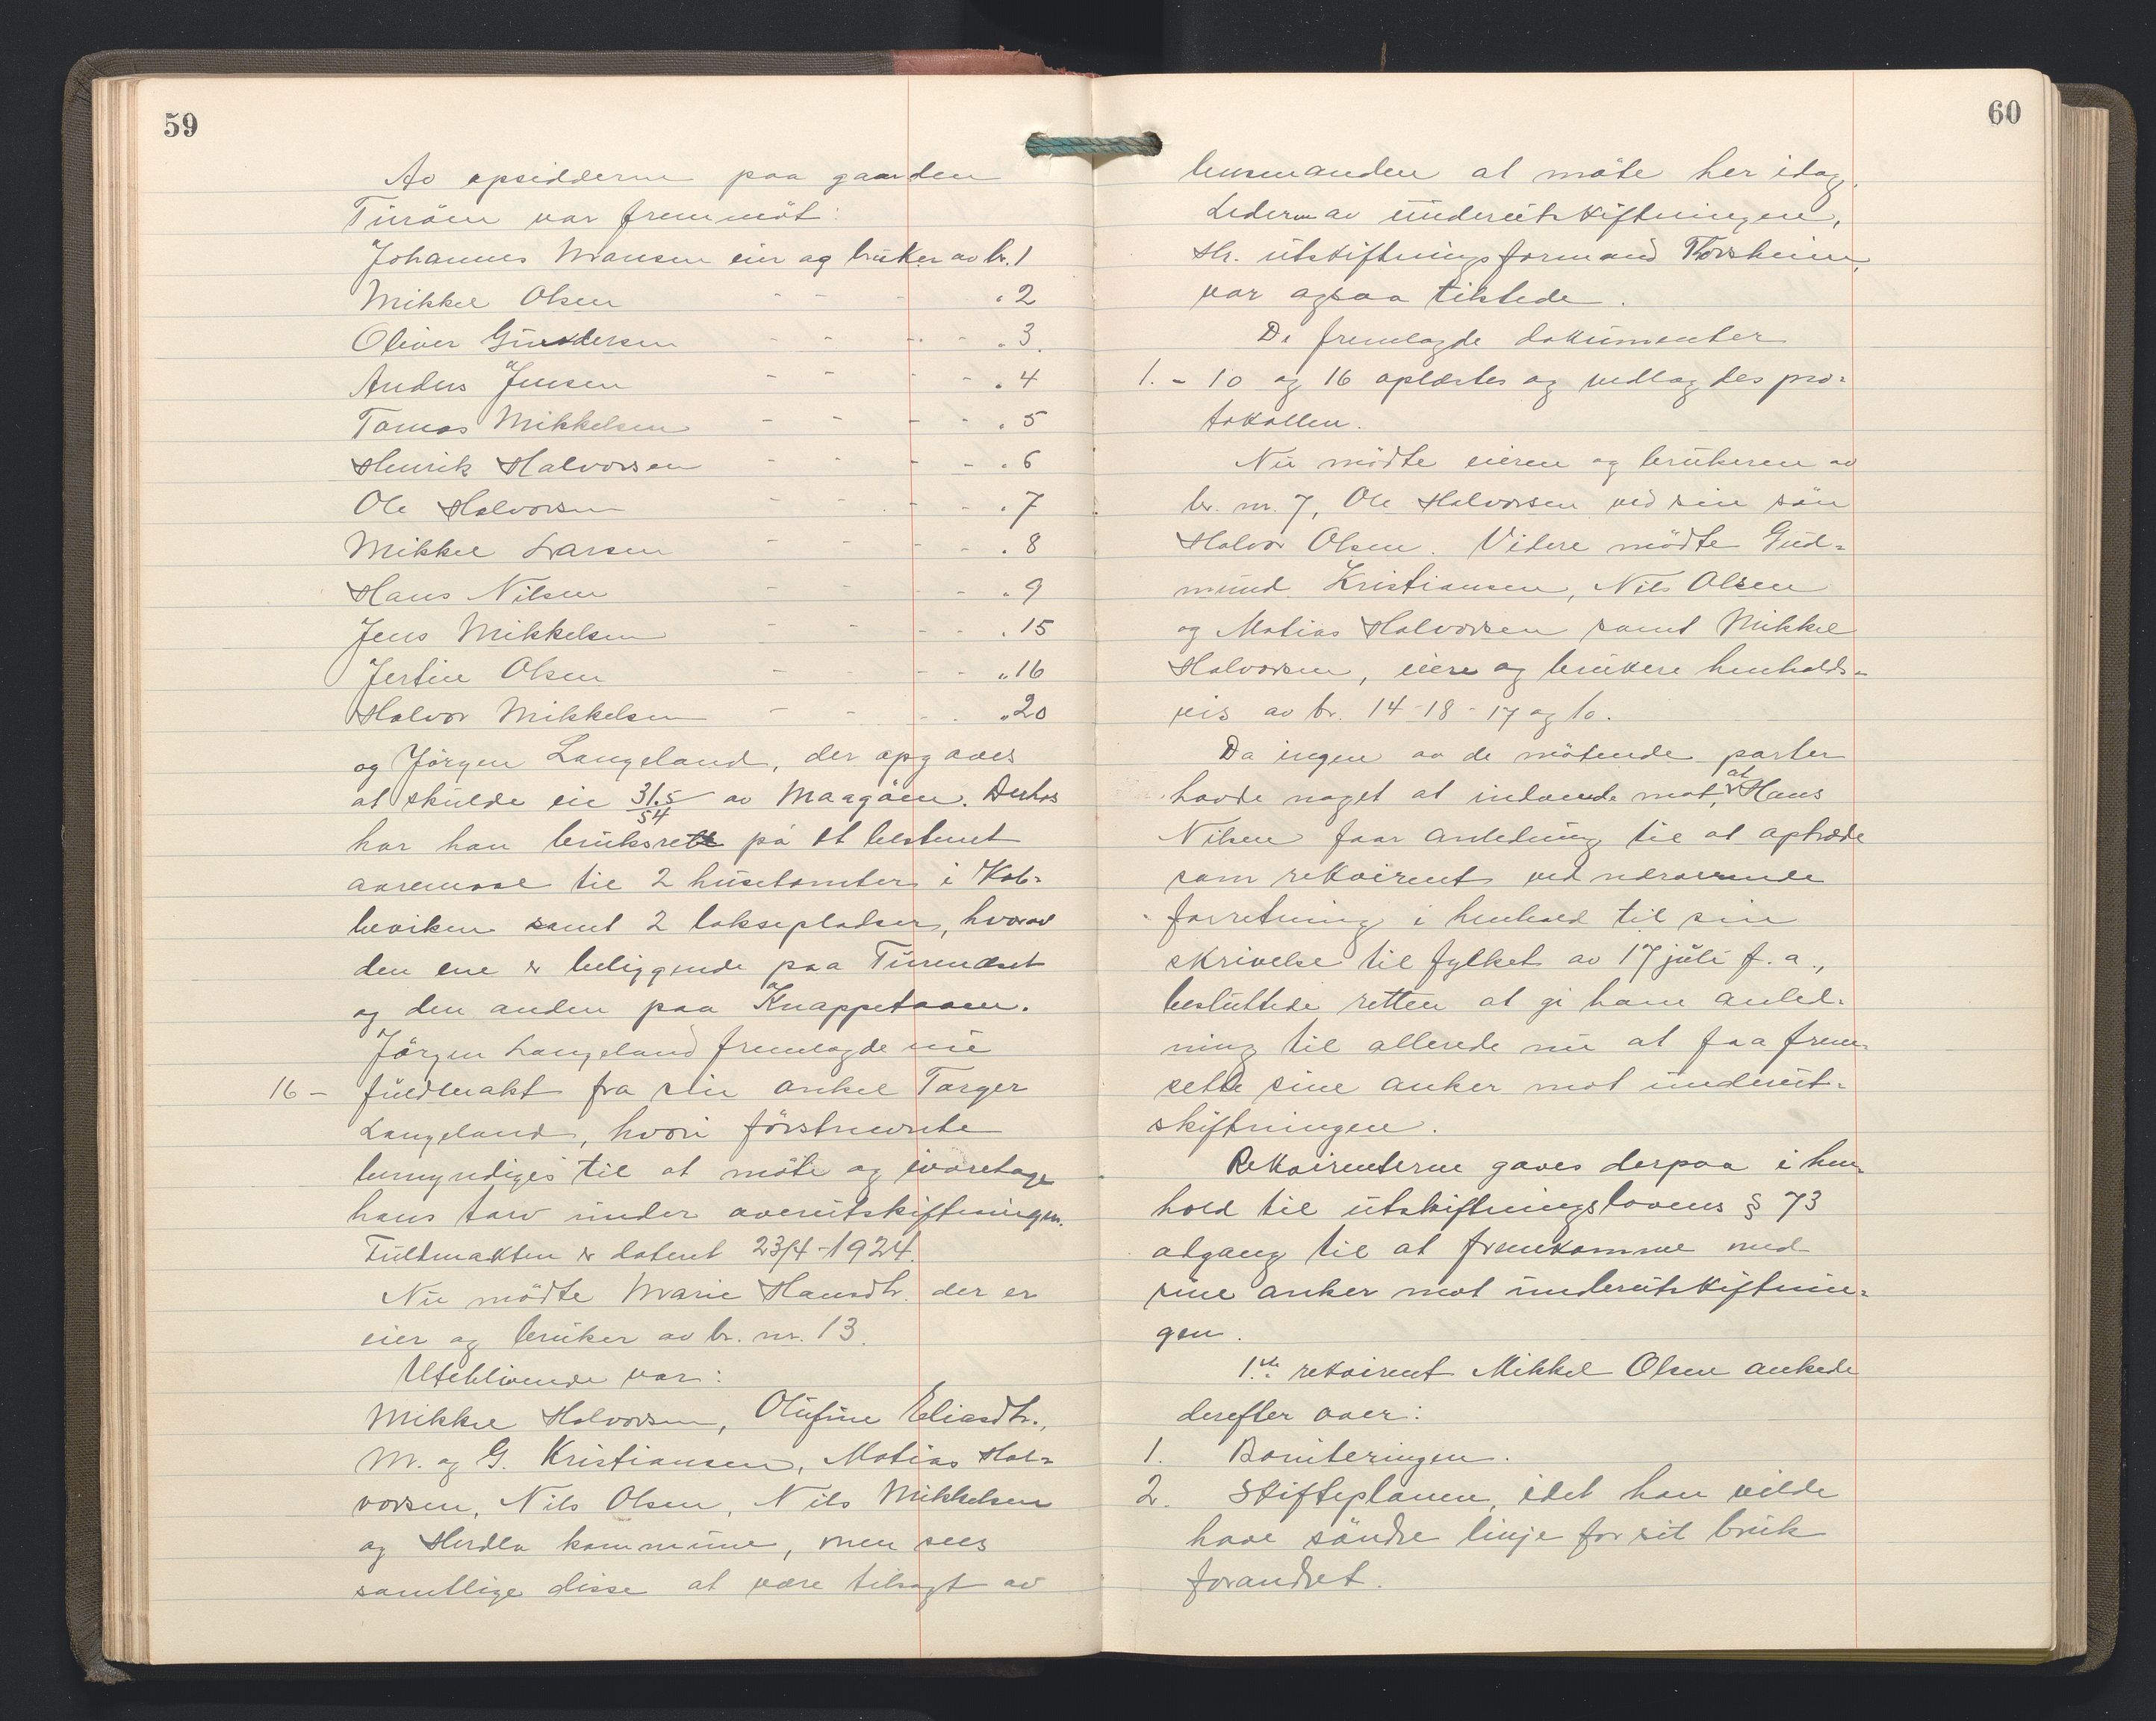 59
Av opsidderne paa gaarden
Turöen var fremmöt:
Johannes Monsen eier og bruker av br. 1
Mikkel Olsen - - - - " 2
Oliver Gundersen - - - - " 3
Anders Jensen - - - - " 4
Tomas Mikkelsen - - - - " 5
Henrik Halvorsen - - - - " 6
Ole Halvorsen - - - - " 7
Mikkel Larsen - - - - " 8
Hans Nilsen - - - - " 9
Jens Mikkelsen - - - - " 15
Jertine Olsen - - - - " 16
Halvor Mikkelsen - - - - " 20
og Jörgen Langeland, der opgaves
at skulde eie 31.5/54 av Maagöen. Derhos
har han bruksrett på et bestemt
aaremaal til 2 husetomter i Kob-
beviken samt 2 laksepladser, hvorav
den ene er beliggende paa Tureneset
og den anden paa Knappetaaen.
Jörgen Langeland fremlagde nu
16 - fuldmakt fra sin onkel Torger
Langeland, hvori förstnevnte
bemyndiges til at möte og ivareta
hans tarv under overutskiftningen.
Fuldmakten er datert 23/4-1924.
Nu mödte Marie Hansdtr. der er
eier og bruker av br. nr. 13.
Uteblivende var:
Mikkel Halvorsen, Olufine Eliasdtr.,
M. og G. Kristiansen, Matias Hal-
vorsen, Nils Olsen, Nils Mikkelsen
og Herdla kommune, men sees
samtlige disse at være tilsagt av
60
lensmanden at möte her idag.
Lederen av underutskiftningen,
Hr. utskiftningsformand Torsheim,
var ogsaa tilstede.
De fremlagde dokumenter
1. - 10 og 16 oplæstes og vedlagdes pro-
tokollen.
Nu mödte eieren og brukeren av
br. nr. 7, Ole Halvorsen ved sin sön
Halvor Olsen. Videre mödte Gud-
mund Kristiansen, Nils Olsen
og Matias Halvorsen samt Mikkel
Halvorsen, eiere og brukere henholds-
vis av br. 14-18-17 og 10.
Da ingen av de mötende parter
havde noget at indvende mot, at Hans
Nilsen faar anledning til at optræde
som rekvirent ved nærværende
forretning i henhold til sin
skrivelse til fylket av 17 juli f.a.,
besluttede retten at gi ham anled-
ning til allerede nu at faa frem-
sette sine anker mot underut-
skiftningen.
Rekvirenterne gaves derpaa i hen-
hold til utskiftningslovens § 73
adgang til at fremkomme med
sine anker mot underutskiftnin-
gen.
1ste rekvirent Mikkel Olsen ankede
derefter over:
1. Boniteringen.
2. Skifteplanen, idet han vilde
have söndre linje for sit bruk
forandret.